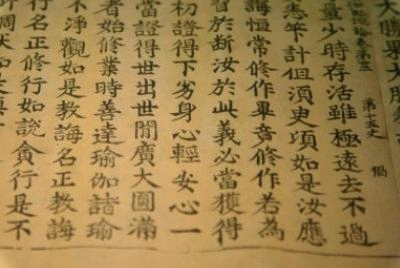 大勝果大勝
第十五丈
量少時存活雖極遠去不過
計但須臾頃如是汝應
誨恒常修作畢竟修作若為
於斯汝於此義必當獲得
初證得下劣身心輕安心一
當證得世出世間廣大圓滿
者始修業時善達瑜伽諸瑜
不淨觀如是教誨名正教誨
行名正修行如說貪行是不